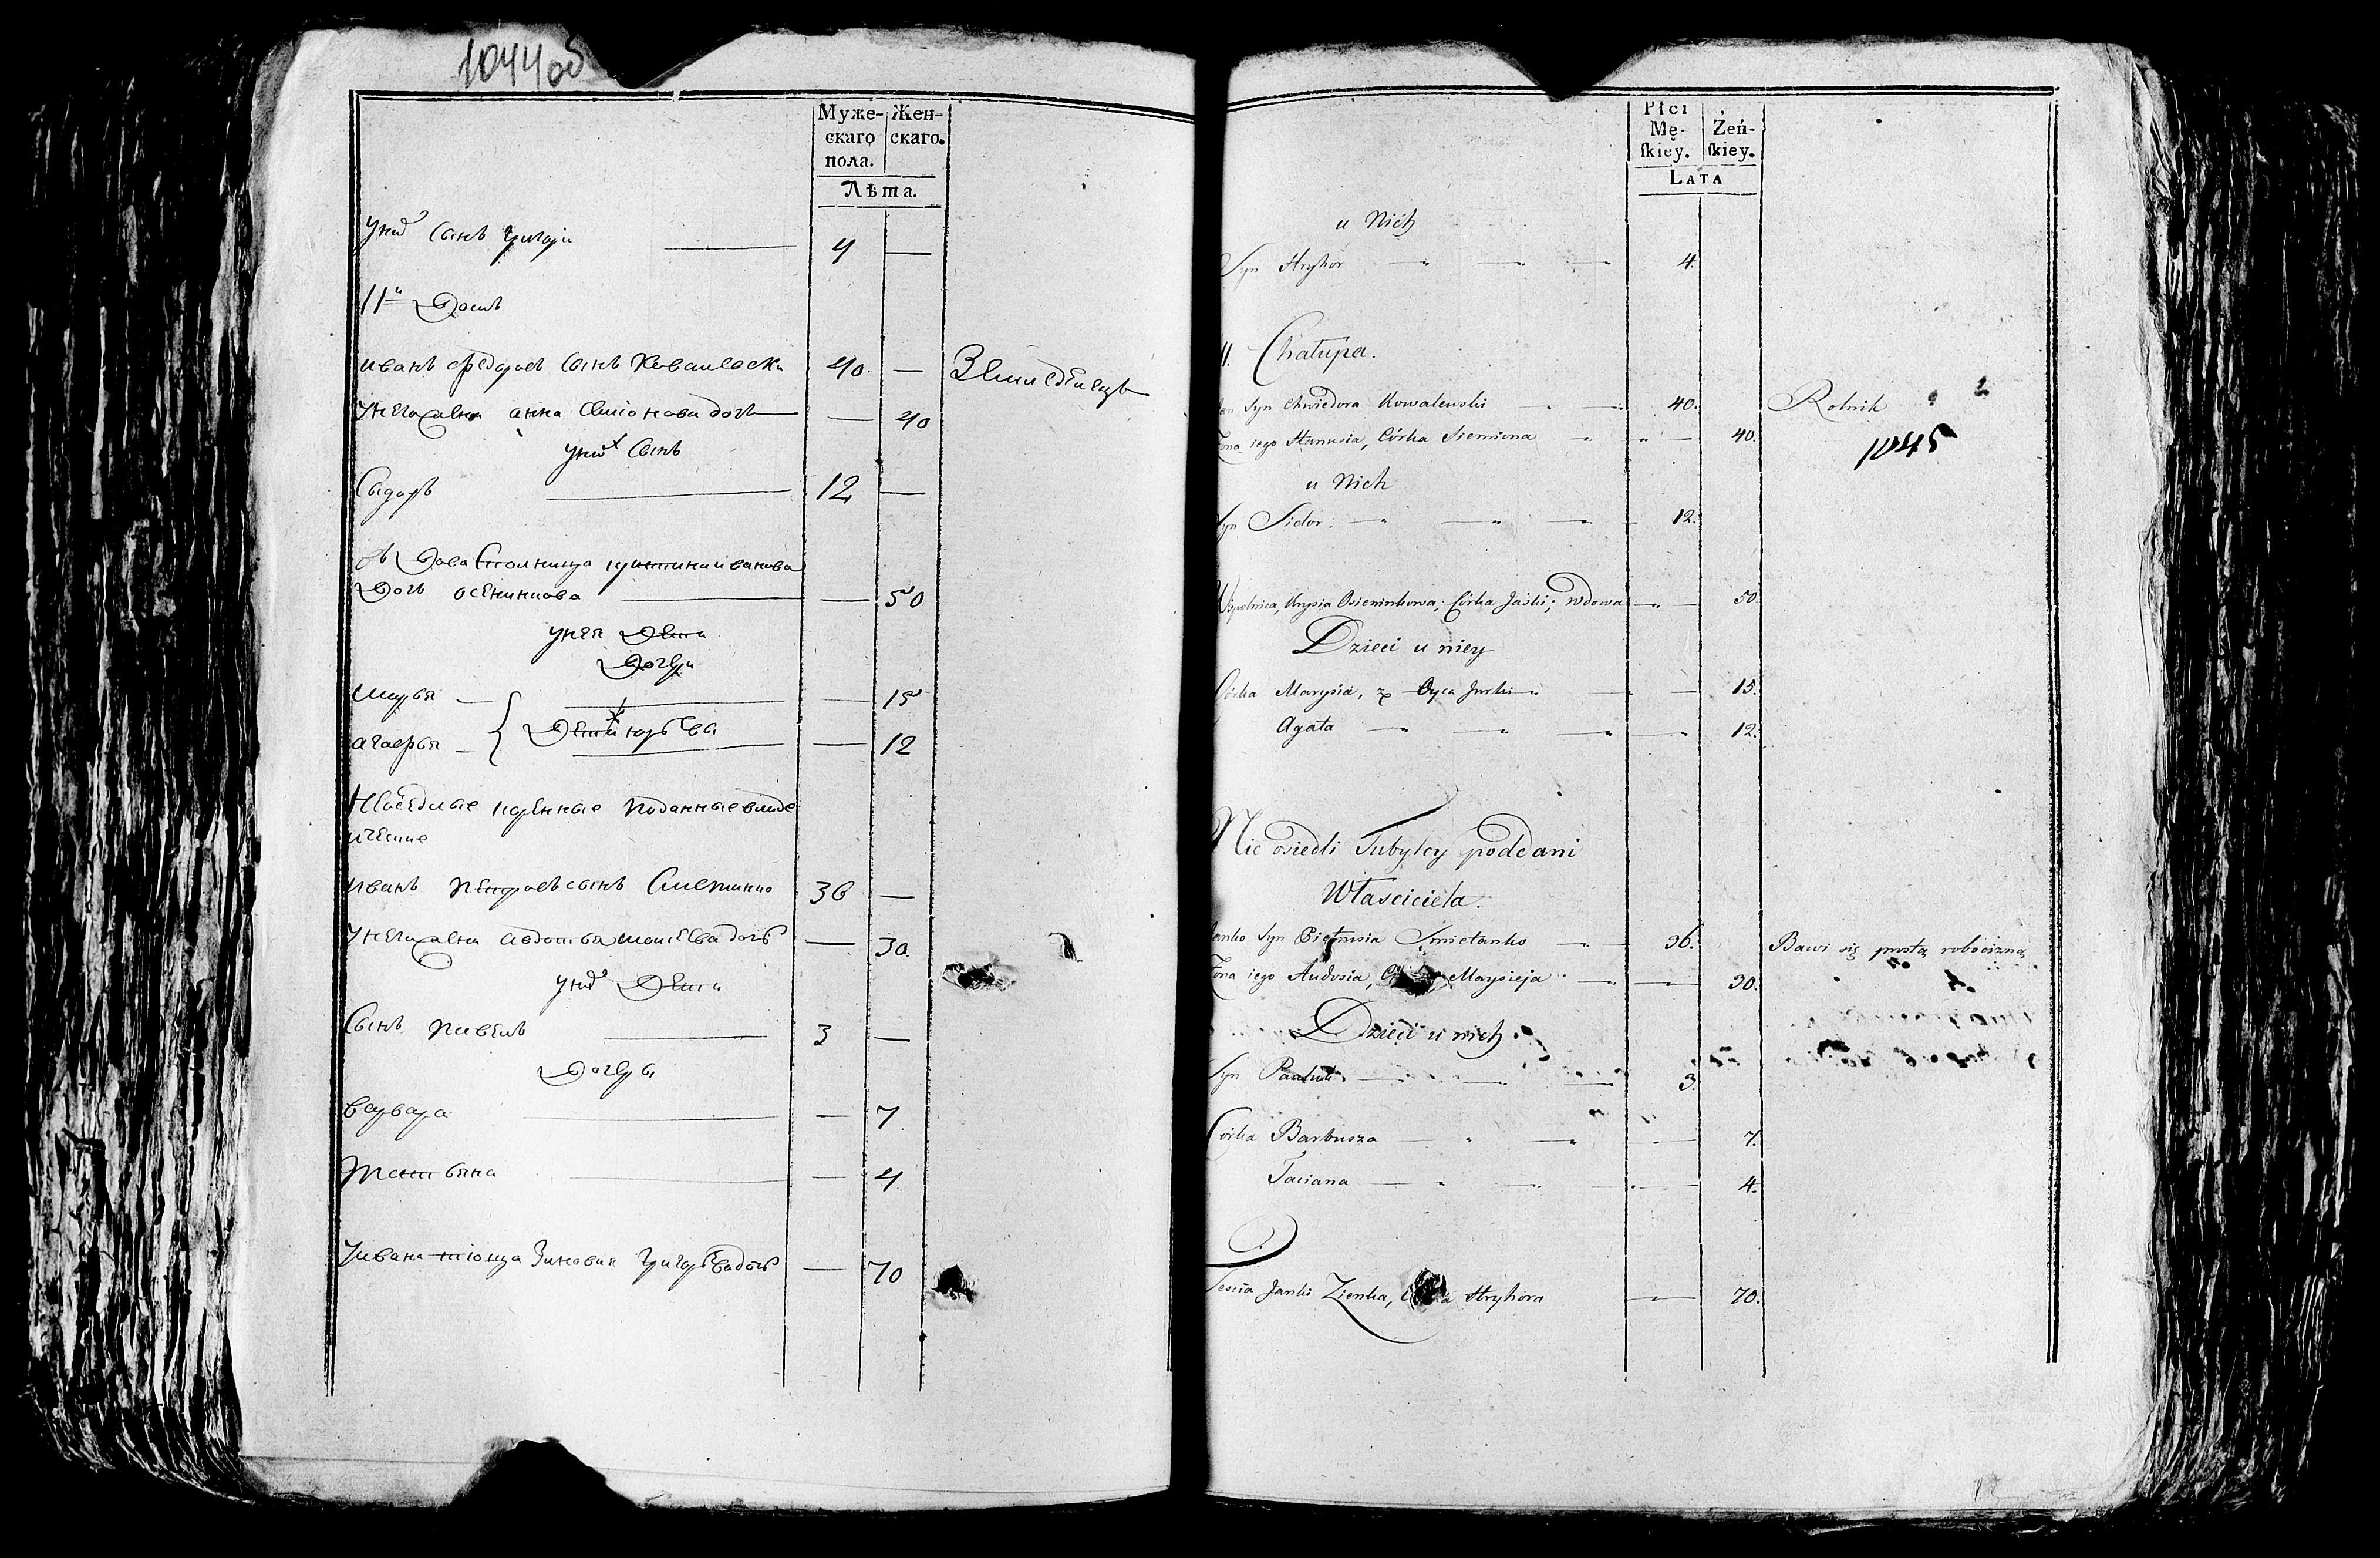 1044об
Муже-
скаго
пола.
Жен-
скаго.
Лѣта.
у них сынъ григори 4 —
11й Домъ
иванъ Федоровъ сынъ Ковалевски 40 — Земледелецъ
у него жена анна Семionова дочь — 40
у них сынъ
Сидоръ 12 —
вдова иванова
дочь — 50
у нея дети
дочери
марья — 15
агафья — 12
дети юрьевы
Неоседлые подданные владе
иванъ Петровъ сынъ Сметанко 36 —
у него жена авдотья дочь — 30
у них дети
Сынъ павелъ 3 —
дочери
варвара — 7
татьяна — 4
у ивана теща Зиновия григорьева дочь — 70
Płci
Mę-
ſkiey.
Zeń-
ſkiey.
LATA
u Nich
Syn Hryhor 4.
11. Chałupa.
Syn Chwiedora Kowalewski 40. Rolnik
Zona iego Hanusia, Córka Siemiona 40.
1045
u Nich
Syn Sidor 12.
Wspolnica, Krysia Osieninkowa, Córka Jaśki; wdowa 50
Dzieci u niey
Córka Marysia, z Oyca Jurki 15.
Agata 12.
Nie osiedli Tubylcy poddani
Własciciela.
Janko Syn Pietrusia Smietanko 36. Bawi się prostą robocizną
Zona iego Audosia, Maysieja 30.
Dzieci u nich
Syn Pauluk 3
Córka Barbusza 7.
Taciana 4.
Tescia Janki Zienka, Hryhora 70.